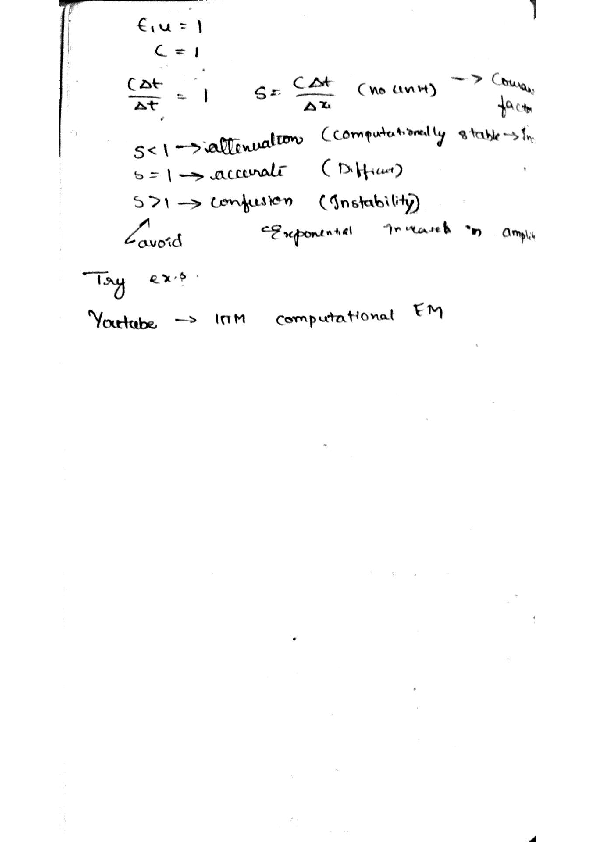 ε, μ = 1
C = 1
CΔt/Δt = 1 S = CΔt/Δx (no unit) -> Couran
factor
S<1 -> attenuation (computationally stable -> In
S=1 -> accurate (Difficult)
S>1 -> confusion (Instability)
avoid Exponential increase in ampli
Try exp.
Youtube -> computational EM